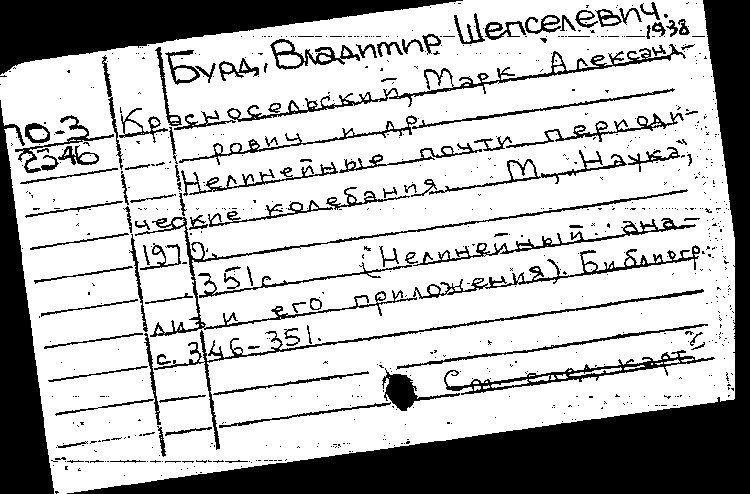 Бурд, Владимир Шепселевич.
1938
70-3
2346
Красносельский, Марк Александ-
рович и др.
Нелинейные почти периоди-
ческие колебания. М., "Наука",
1970.
351с. (Нелинейный ана-
лиз и его приложения). Библиогр.:
с. 346-351.
См. след. карт.